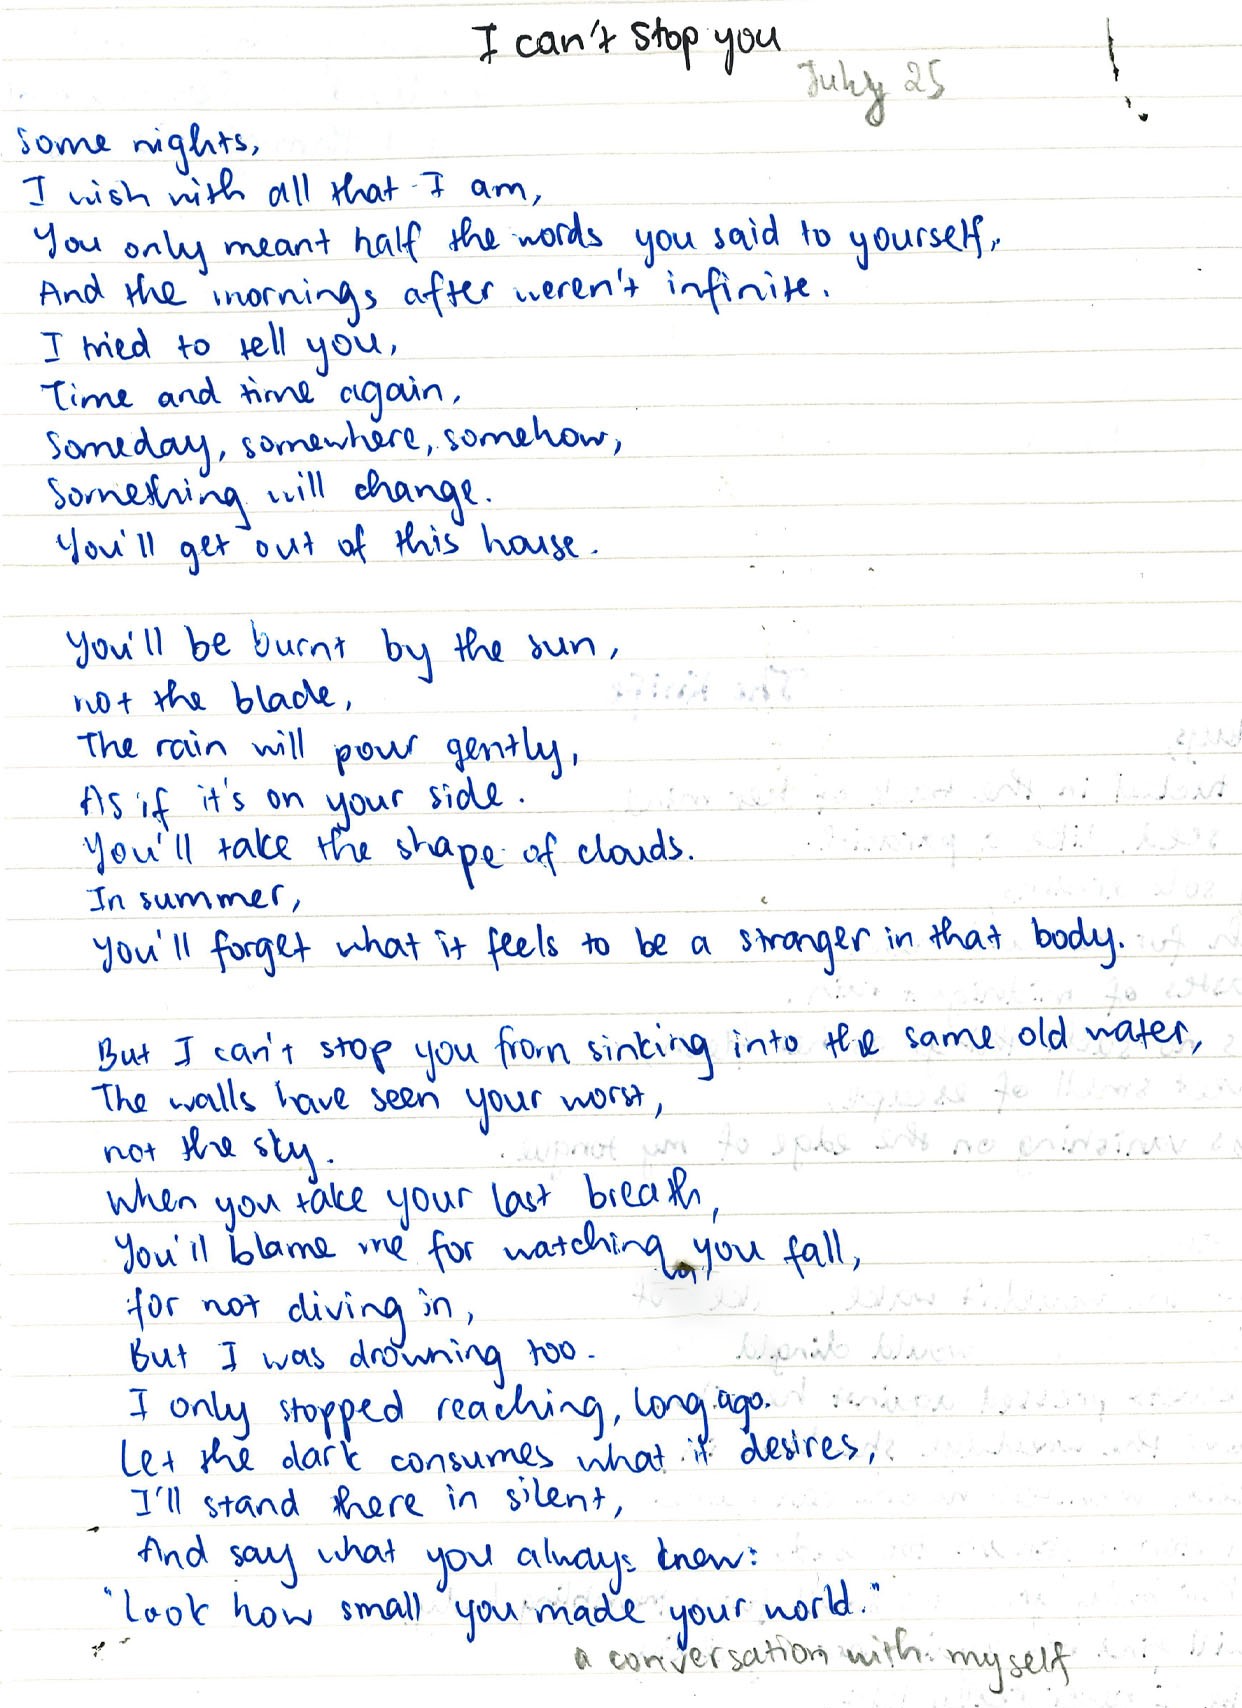 I can't stop you
July 25
!
Some nights,
I wish with all that I am,
You only meant half the words you said to yourself,
And the mornings after weren't infinite.
I tried to tell you,
Time and time again,
Someday, somewhere, somehow,
Something will change.
You'll get out of this house.
You'll be burnt by the sun,
not the blade,
The rain will pour gently,
As if it's on your side.
You'll take the shape of clouds.
In summer,
You'll forget what it feels to be a stranger in that body.
But I can't stop you from sinking into the same old water,
The walls have seen your worst,
not the sky.
When you take your last breath,
You'll blame me for watching you fall,
for not diving in,
But I was drowning too.
I only stopped reaching, long ago.
Let the dark consumes what it desires,
I'll stand there in silent,
And say what you always knew:
"Look how small you made your world."
a conversation with myself